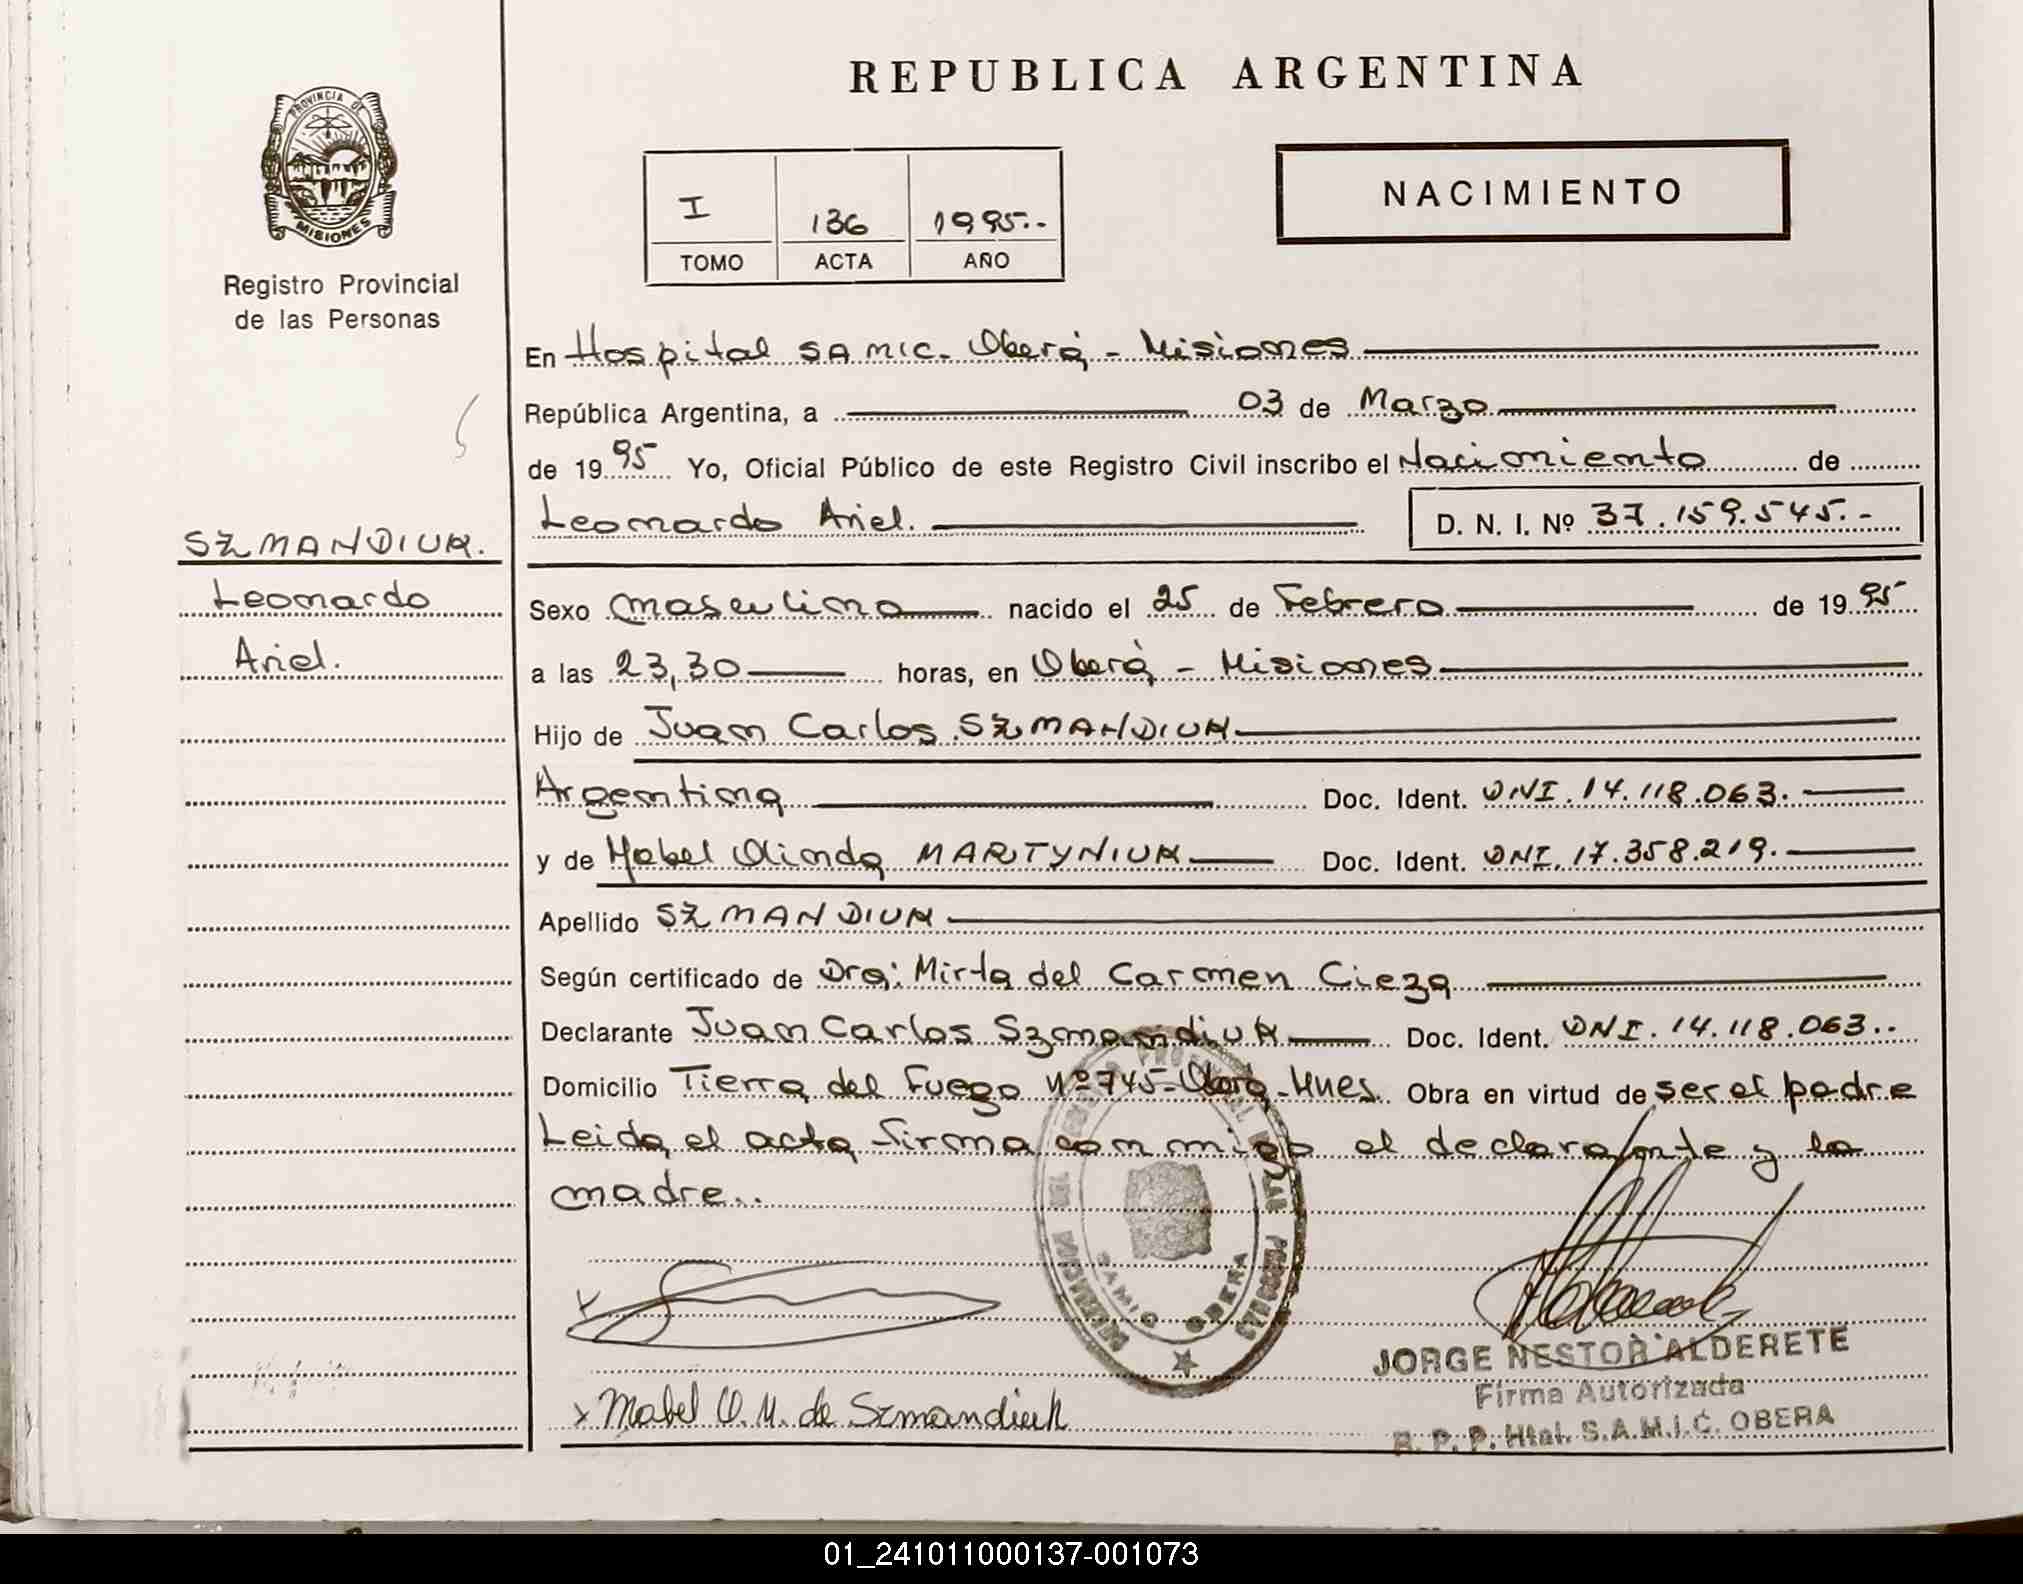 REPUBLICA ARGENTINA
PROVINCIA DE
MISIONES
Registro Provincial
de las Personas
I 136 1995..
TOMO ACTA AÑO
NACIMIENTO
En Hospital SAMIC. Oberá - Misiones
República Argentina, a 03 de Marzo
de 1995 Yo, Oficial Público de este Registro Civil inscribo el Nacimiento de
Leonardo Ariel. D. N. I. Nº 37.159.545.-
SZMANDIUK.
Leonardo
Ariel.
Sexo masculino nacido el 25 de Febrero de 1995
a las 23,30 horas, en Oberá - Misiones
Hijo de Juan Carlos SZMANDIUK
Argentina Doc. Ident. DNI. 14.118.063.
y de Mabel Olinda MARTYNIUK Doc. Ident. DNI. 17.358.219.
Apellido SZMANDIUK
Según certificado de Dra: Mirta del Carmen Cieza
Declarante Juan Carlos Szmandiuk Doc. Ident. DNI. 14.118.063..
Domicilio Tierra del Fuego Nº 745- Oberá - Mnes. Obra en virtud de ser el padre
Leida el acta firma conmigo el declarante y la
madre..
SAMIC OBERA
JORGE NESTOR ALDERETE
Firma Autorizada
R. P. P. Htal. S.A.M.I.C. OBERA
x Mabel O. M. de Szmandiuk
01_241011000137-001073